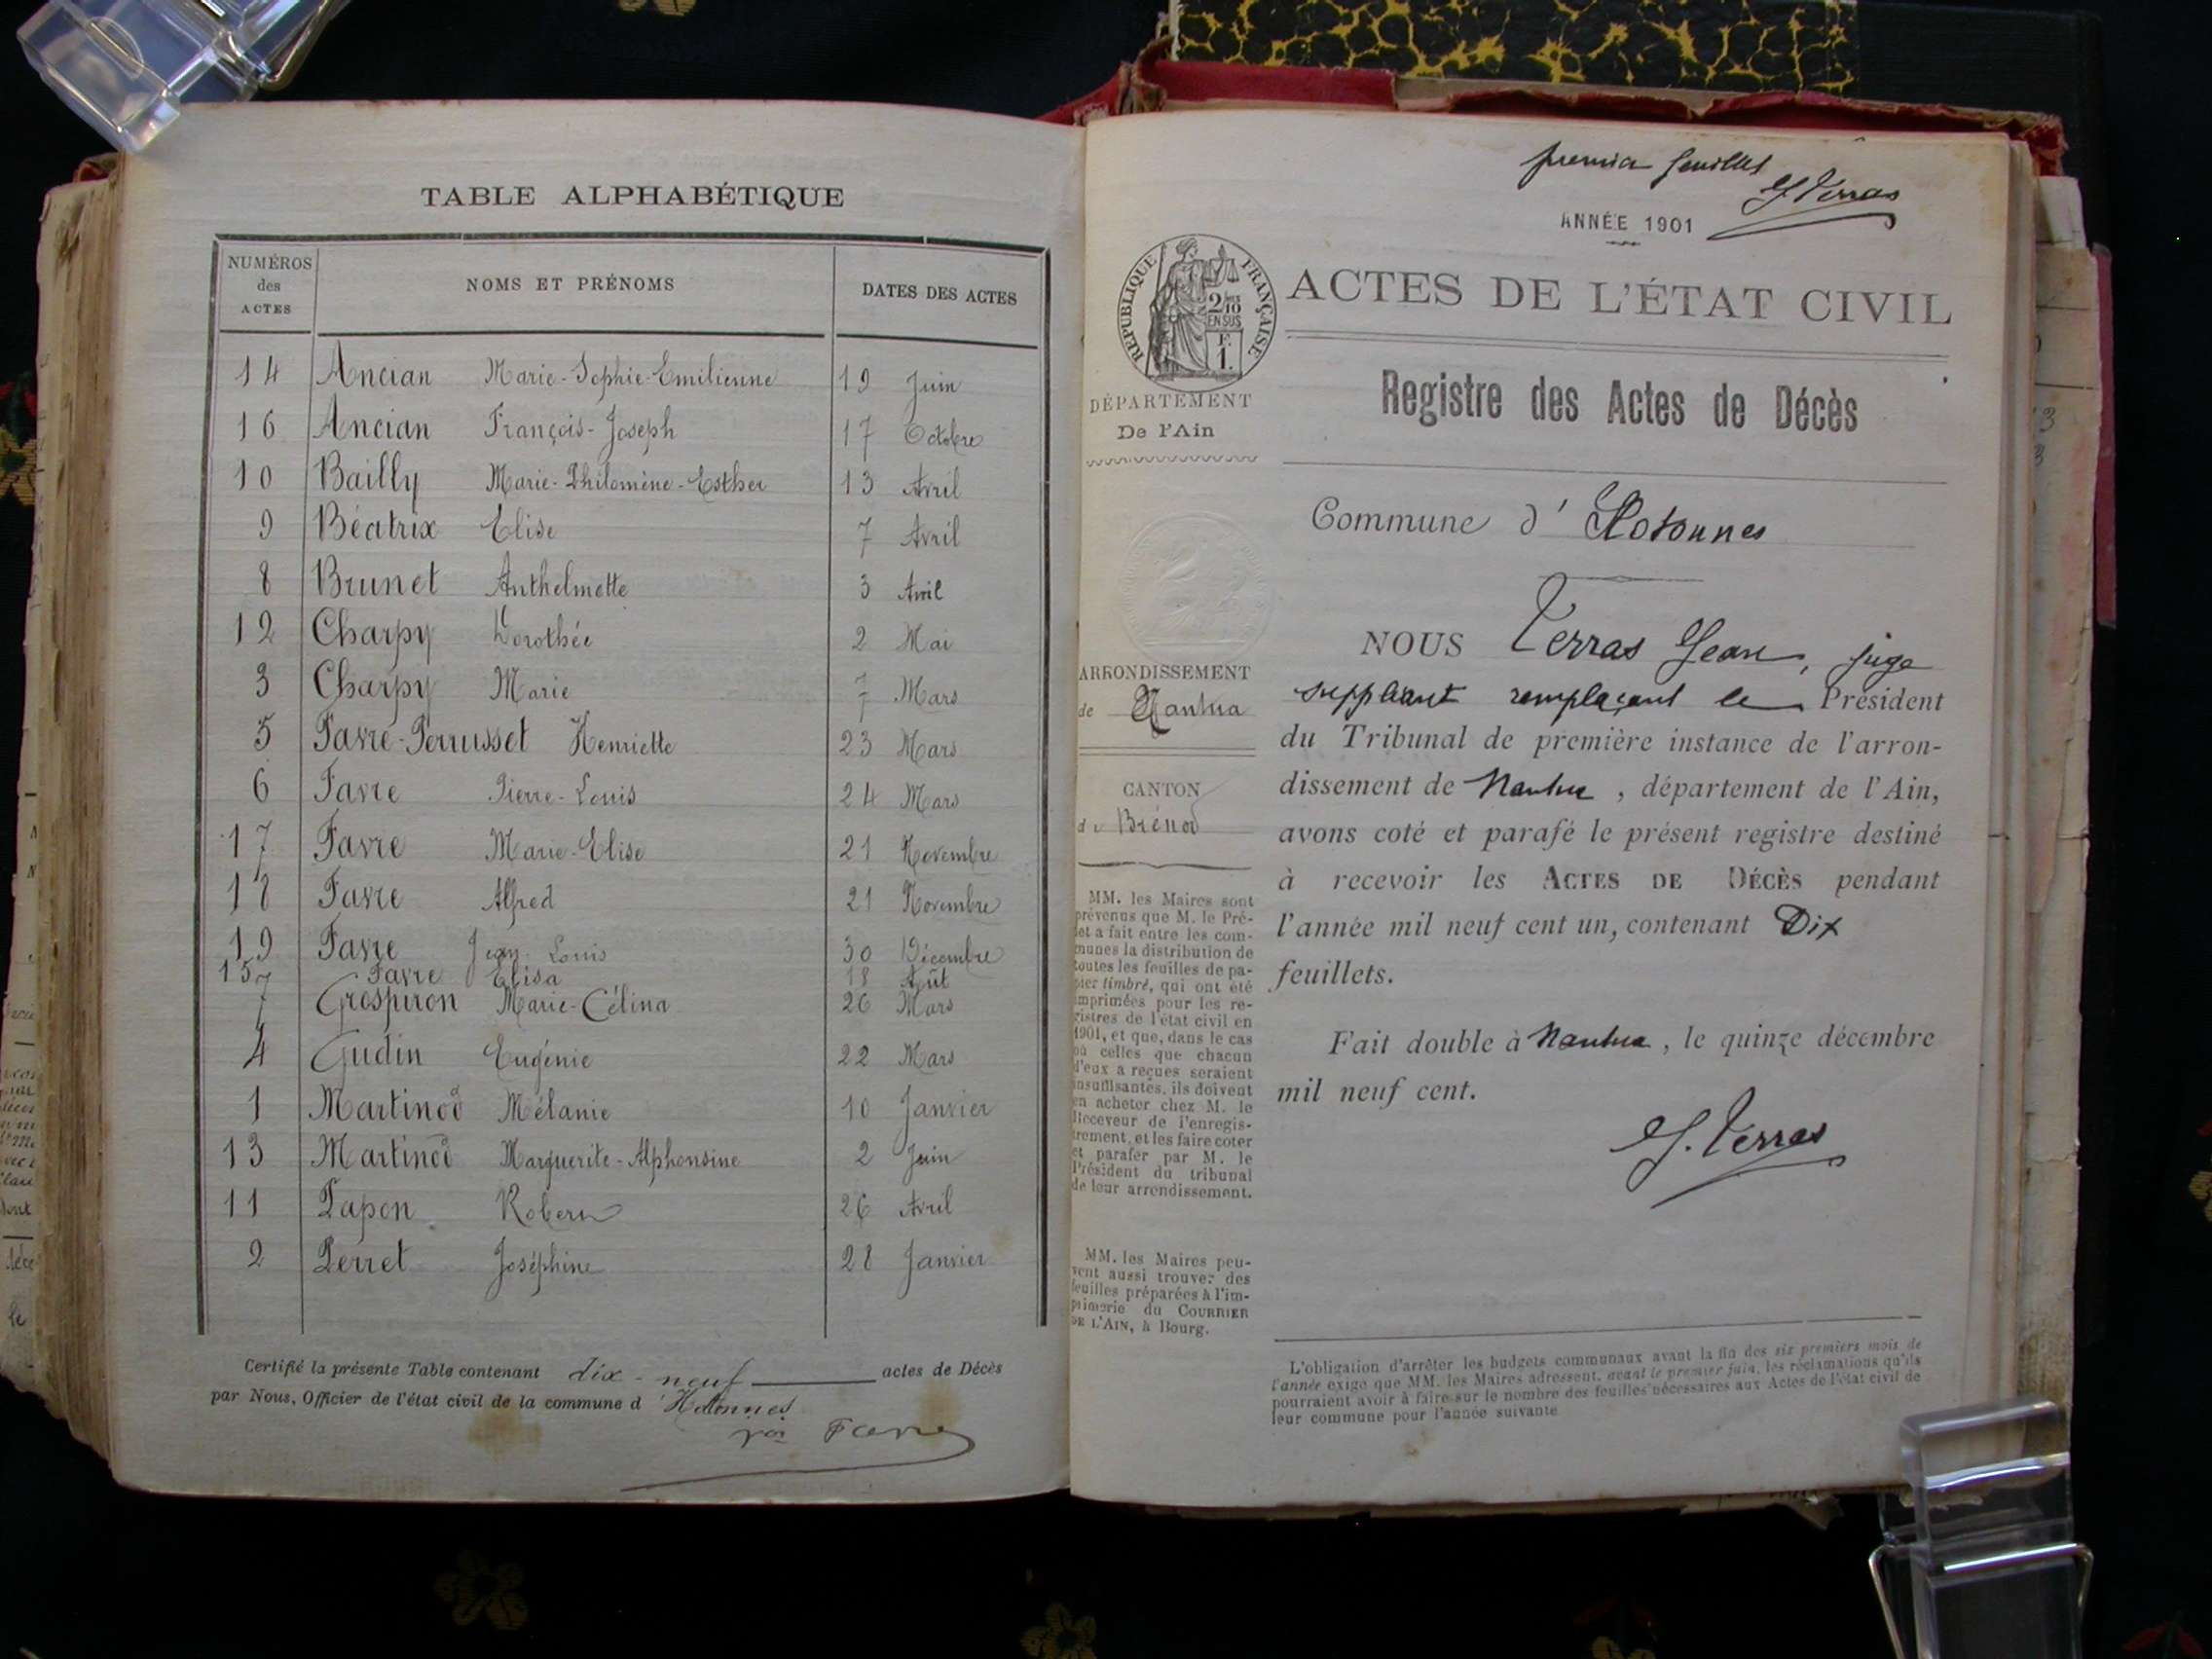 TABLE ALPHABÉTIQUE
NUMÉROS des ACTES NOMS ET PRÉNOMS DATES DES ACTES
14 Ancian Marie-Sophie-Emilienne 19 Juin
16 Ancian François-Joseph 17 Octobre
10 Bailly Marie-Philomène-Esther 13 Avril
9 Béatrix Elise 7 Avril
8 Brunet Anthelmette 3 Avril
12 Charpy Dorothée 2 Mai
3 Charpy Marie 7 Mars
5 Favre-Perrusset Henriette 23 Mars
6 Favre Pierre-Louis 24 Mars
17 Favre Marie-Elise 21 Novembre
18 Favre Alfred 21 Novembre
19 Favre Jean Louis 30 Décembre
15 Favre Elisa 18 Aût
7 Grospiron Marie-Célina 26 Mars
4 Gudin Eugénie 22 Mars
1 Martinod Mélanie 10 Janvier
13 Martinod Marguerite-Alphonsine 2 Juin
11 Papon 26 Avril
2 Perret Joséphine 28 Janvier
Certifié la présente Table contenant dix-neuf actes de Décès
par Nous, Officier de l'état civil de la commune d' Hotonnes
Favre
premier feuillet
J Verras
ANNÉE 1901
RÉPUBLIQUE FRANÇAISE
2/10
EN SUS
F.
1.
ACTES DE L'ÉTAT CIVIL
Registre des Actes de Décès
DÉPARTEMENT
De l'Ain
Commune d' Hotonnes
ARRONDISSEMENT
de Nantua
CANTON
de Brénod
NOUS Verras Jean, juge
suppléant remplaçant le Président
du Tribunal de première instance de l'arron-
dissement de Nantua, département de l'Ain,
avons coté et parafé le présent registre destiné
à recevoir les ACTES DE DÉCÈS pendant
l'année mil neuf cent un, contenant Dix
feuillets.
Fait double à Nantua, le quinze décembre
mil neuf cent.
J. Verras
MM. les Maires sont
prévenus que M. le Pré-
fet a fait entre les com-
munes la distribution de
toutes les feuilles de pa-
pier timbré, qui ont été
imprimées pour les re-
gistres de l'état civil en
1901, et que, dans le cas
où celles que chacun
d'eux a reçues seraient
insuffisantes, ils doivent
en acheter chez M. le
Receveur de l'enregis-
trement, et les faire coter
et parafer par M. le
Président du tribunal
de leur arrondissement.
MM. les Maires peu-
vent aussi trouver des
feuilles préparées à l'im-
primerie du COURRIER
DE L'AIN, à Bourg.
L'obligation d'arrêter les budgets communaux avant la fin des six premiers mois de
l'année exige que MM. les Maires adressent, avant le premier juin, les réclamations qu'ils
pourraient avoir à faire sur le nombre des feuilles nécessaires aux Actes de l'état civil de
leur commune pour l'année suivante